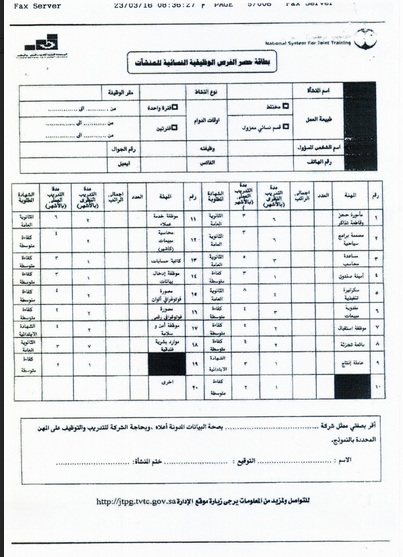 Fax Server 23/03/16 08:36:27 PAGE 5/006 Fax Server
National System For Joint Training
بطاقة حصر الفرص الوظيفية النسائية للمنشآت
اسم المنشأة نوع النشاط مقر الوظيفة
طبيعة العمل مختلط قسم نسائي معزول اوقات الدوام فترة واحدة من .......... الى ..........
فترتين من .......... الى ..........
من .......... الى ..........
اسم الشخص المسؤول وظيفته رقم الجوال
رقم الهاتف الفاكس ايميل
رقم المهنة العدد اجمالي الراتب مدة التدريب النظري (بالأشهر) مدة التدريب العملي (بالأشهر) الشهادة المطلوبة رقم المهنة العدد اجمالي الراتب مدة التدريب النظري (بالأشهر) مدة التدريب العملي (بالأشهر) الشهادة المطلوبة
١ مأمورة حجز وقاطعة تذاكر ٦ ٣ الثانوية العامة ١١ موظفة خدمة عملاء ٢ الثانوية العامة
٢ مصممة برامج سياحية ٦ ٣ الثانوية العامة ١٢ محاسبة مبيعات (كاشير) ٢ ٤ كفاءة متوسطة
٣ مساعدة محاسب ٥ الثانوية العامة ١٣ كاتبة حسابات ١ ٣ كفاءة متوسطة
٤ أمينة صندوق ١ ٤ كفاءة متوسطة ١٤ موظفة إدخال بيانات ١ ٣ كفاءة متوسطة
٥ سكرتيرة تنفيذية ٤ ٨ الثانوية العامة ١٥ مصورة فوتوغرافي ألوان ٢ ٤ كفاءة متوسطة
٦ مندوبة مبيعات ٣ ٤ كفاءة متوسطة ١٦ مصورة فوتوغرافي رقمي ٢ ٤ كفاءة متوسطة
٧ موظفة استقبال ٢ ٤ كفاءة متوسطة ١٧ موظفة أمن و سلامة ٢ ٤ الشهادة الابتدائية
٨ بائعة تجزئة ٢ ٤ كفاءة متوسطة ١٨ موارد بشرية فندقية ٧ ٣ الثانوية العامة
٩ عاملة إنتاج ١ ٣ الشهادة الابتدائية ١٩ ١ ٢ كفاءة متوسطة
١٠ ١ ٢ كفاءة متوسطة ٢٠ اخرى
أقر بصفتي ممثل شركة .......................... بصحة البيانات المدونة أعلاه ، وبحاجة الشركة للتدريب والتوظيف على المهن
المحددة بالنموذج.
الاسم : .......................... التوقيع : .................... ختم المنشأة: ....................
للتواصل ولمزيد من المعلومات يرجى زيارة موقع الإدارة http://jtpg.tvtc.gov.sa